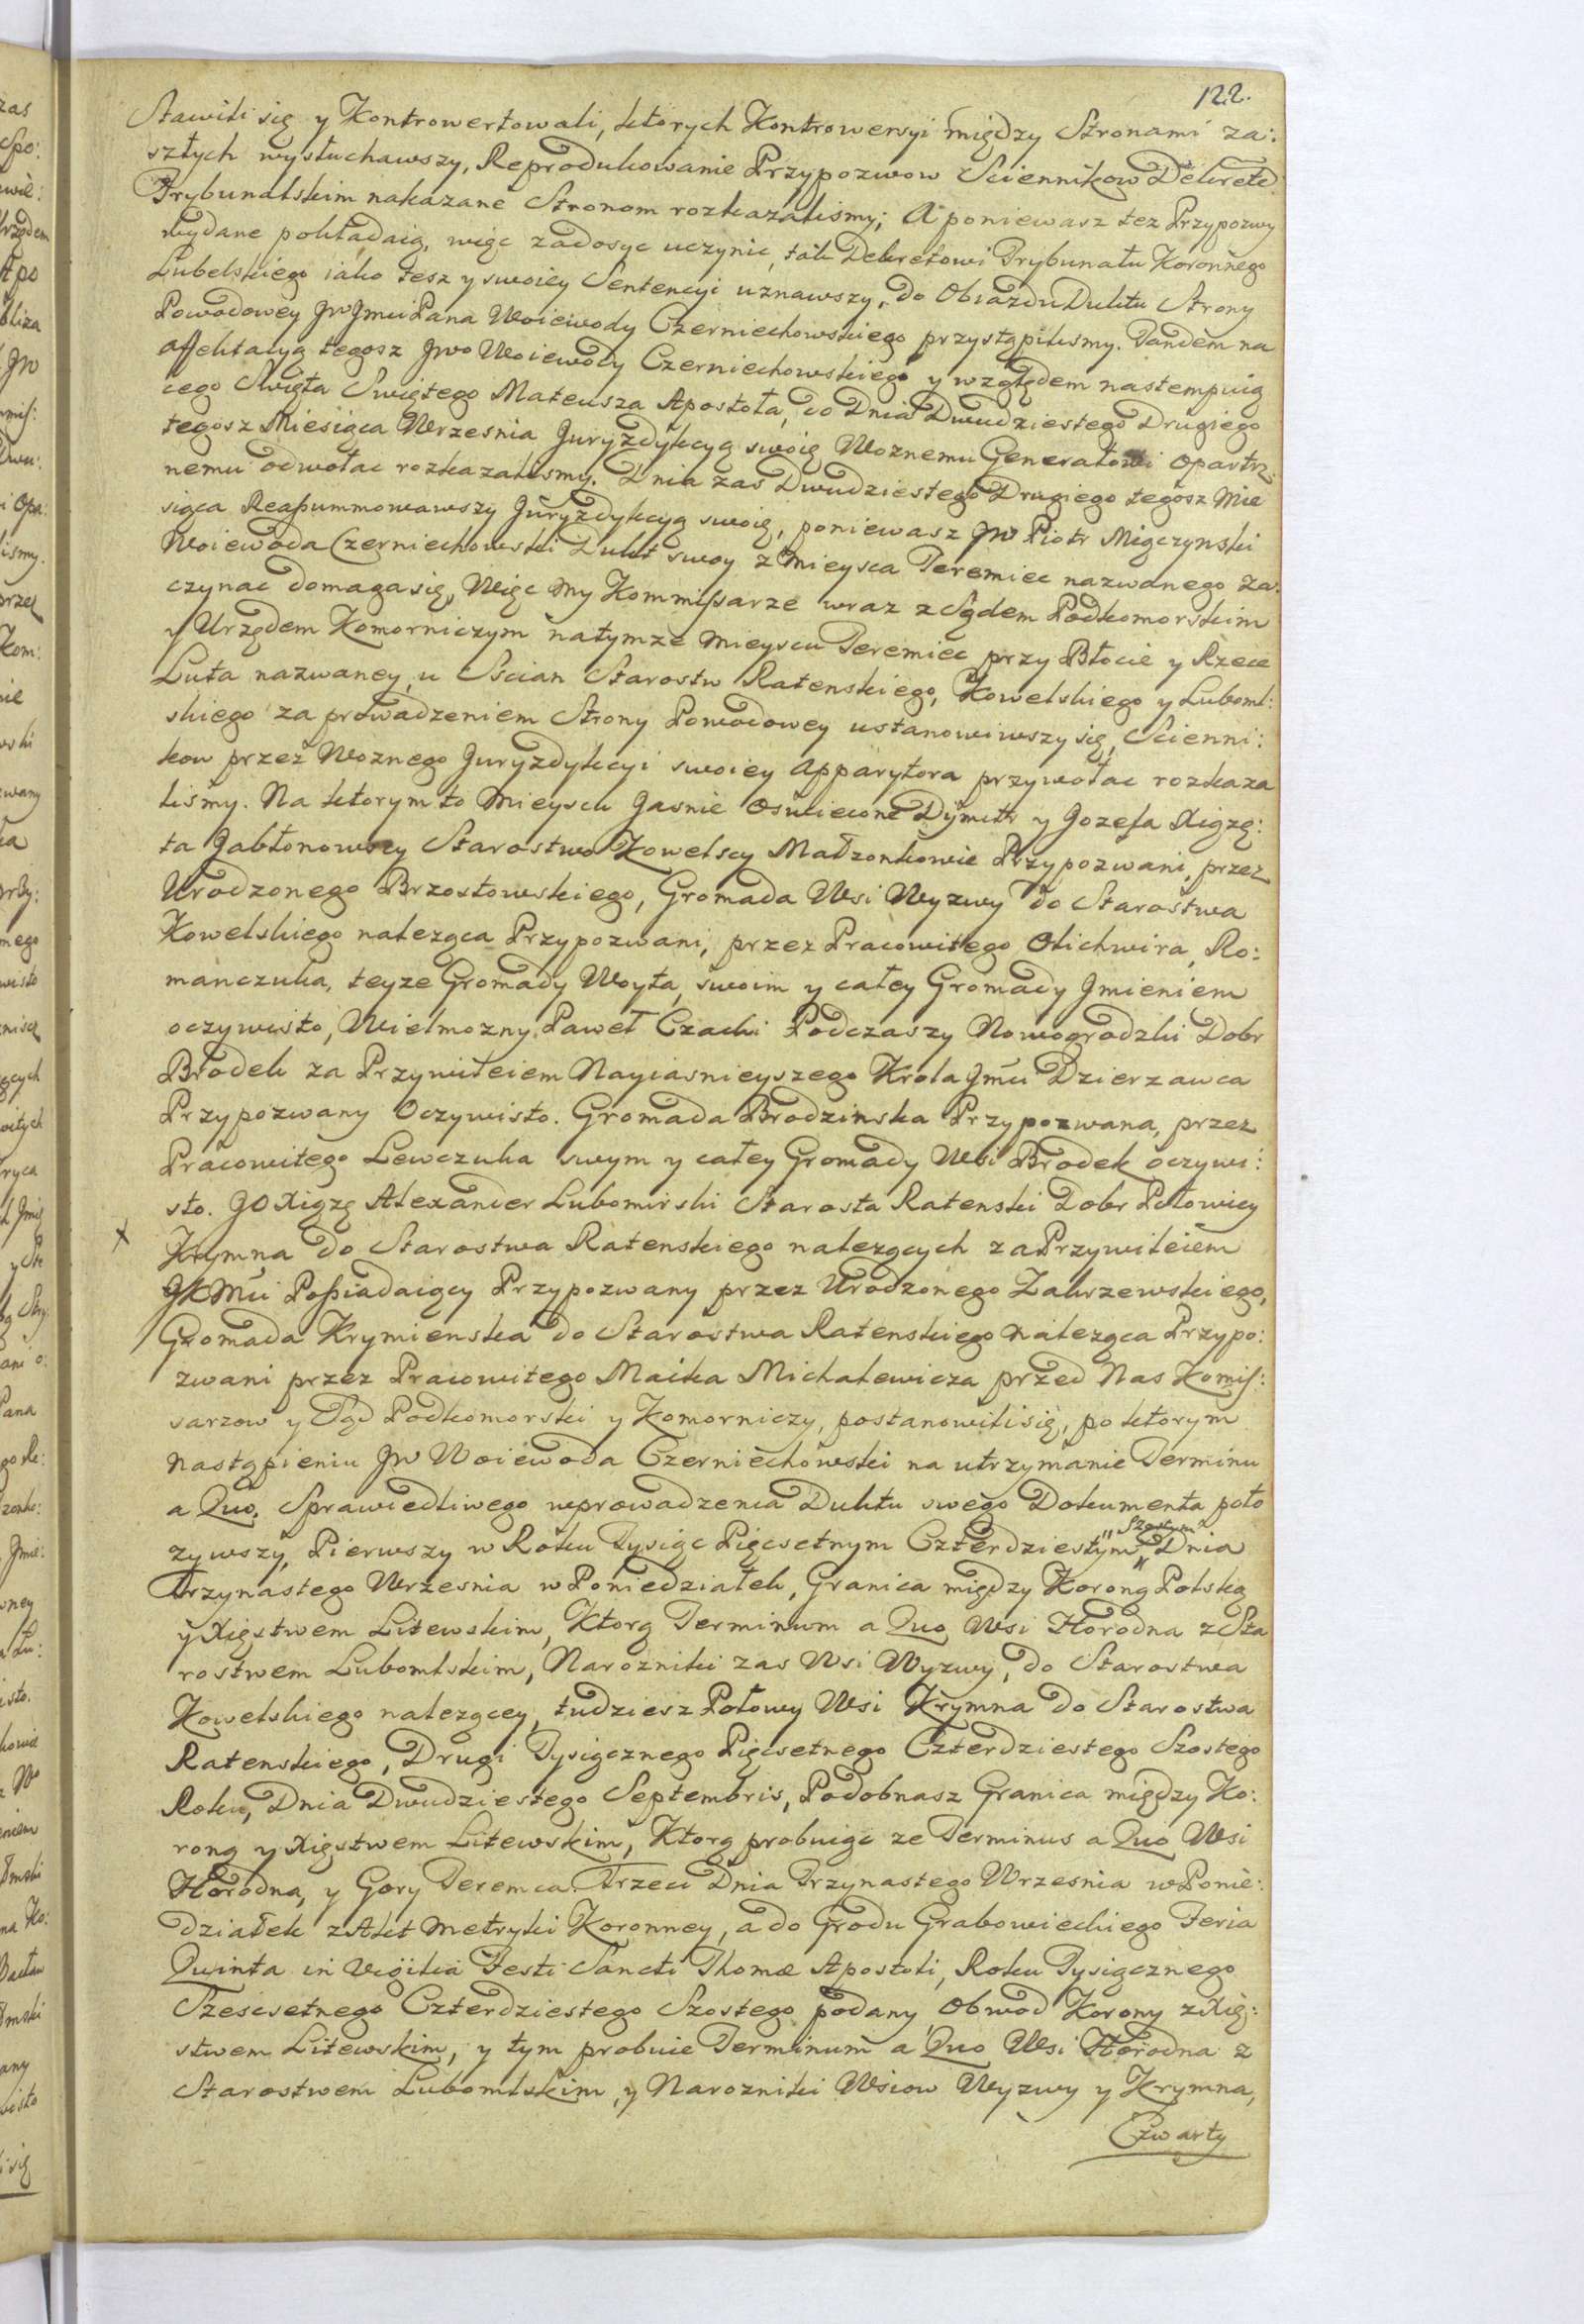 122.
Stawili się y Kontrowertowali, ktorych Kontrowersyi między Stronami za:
szłych wysłuchawszy, Reprodukowanie Przypozwow Sciennikow Dekrete
Trybunalskim nakazane Stronom rozkazalismy; A poniewasz tez Przypozwy
wydane pokładaią, więc zadosyc uczynic, tak Dekretowi Trybunału Koronnego
Lubelskiego iako tesz y swoiey Sentencyi uznawszy, do Obiazdu Duktu Strony
Powodowey JW Jmci Pana Woiewody Czerniechowskiego przystąpilismy. Tandem na
affektacyą tegosz JWo Woiewody Czerniechowskiego y względem nastempuią
cego Swięta Swiętego Mateusza Apostoła, do Dnia Dwudziestego Drugiego
tegosz Miesiąca Wrzesnia Juryzdykcyą swoią Woznemu Generałowi opartrz:
nemu odwołac rozkazalismy. Dnia zas Dwudziestego Drugiego tegosz Mie
siąca Reassummowawszy Juryzdykcyą swoią, poniewasz JW Piotr Miączynski
Woiewoda Czerniechowski Dukt swoy z Mieysca Teremiec nazwanego za:
czynac domaga się, Więc My Kommissarze wraz z Sądem Podkomorskim
y Urzędem Komorniczym na tymze Mieyscu Teremiec przy Błocie y Rzece
Luta nazwaney, u Scian Starostw Ratenskiego, Kowelskiego y Luboml:
skiego za prowadzeniem Strony Powodowey ustanowiwszy się, Scienni:
kow przez Woznego Juryzdykcyi swoiey Apparytora przywołac rozkaza
lismy. Na ktorym to Mieyscu Jasnie Oswiecone Dymitr y Jozefa Xiązę:
ta Jabłonowscy Starostwo Kowelscy Małzonkowie Przypozwani, przez
Urodzonego Brzostowskiego, Gromada Wsi Wyzwy do Starostwa
Kowelskiego naleząca Przypozwani, przez Pracowitego Olichwira, Ro:
manczuka, teyze Gromady Woyta, swoim y całey Gromady Jmieniem
oczywisto, Wielmozny Paweł Czacki Podczaszy Nowogrodzki Dobr
Brodek za Przywileiem Nayiasnieyszego Krola Jmci Dzierzawca
Przypozwany Oczywisto. Gromada Brodzinska Przypozwana, przez
Pracowitego Lewczuka swym y całey Gromady Wsi Brodek oczywi:
sto. JO Xiąze Alexander Lubomirski Starosta Ratenski Dobr Połowicy
x Krymna do Starostwa Ratenskiego nalezących za Przywileiem
JKMci Possiadaiący Przypozwany przez Urodzonego Zakrzewskiego,
Gromada Krymienska do Starostwa Ratenskiego naleząca Przypo:
zwani przez Pracowitego Maika Michalewicza przed Nas Komis:
sarzow y Sąd Podkomorski y Komorniczy, postanowili się, po ktorym
nastąpieniu JW Woiewoda Czerniechowski na utrzymanie Terminu
a Quo, Sprawiedliwego wprowadzenia Duktu swego Dokumenta poło
zywszy, Pierwszy w Roku Tysiąc Pięcsetnym Czterdziestym "Szostym" Dnia
Trzynastego Wrzesnia w Poniedziałek, Granica między Koroną Polską
y Xięstwem Litewskim, Ktorą Terminum a Quo Wsi Horodna z Sta
rostwem Lubomlskim, Narozniki zas Wsi Wyzwy, do Starostwa
Kowelskiego nalezącey, tudziesz Połowy Wsi Krymna do Starostwa
Ratenskiego, Drugi Tysiącznego Pięcsetnego Czterdziestego Szostego
Roku, Dnia Dwudziestego Septembris, Podobnasz Granica między Ko:
roną y Xięstwem Litewskim, Ktorą probuiąc ze Terminus a Quo Wsi
Horodna, y Gory Teremca. Trzeci Dnia Trzynastego Wrzesnia w Ponie:
działek z Akt Metryki Koronney, a do Grodu Grabowieckiego Feria
Quinta in Vigilia Festi Sancti Thomæ Apostoli, Roku Tysiącznego
Szescsetnego Czterdziestego Szostego podany, Obwod Korony z Xię:
stwem Litewskim, y tym probuie Terminum a Quo Wsi Horodna z
Starostwem Lubomlskim, y Narozniki Wsiow Wyzwy y Krymna,
Czwarty